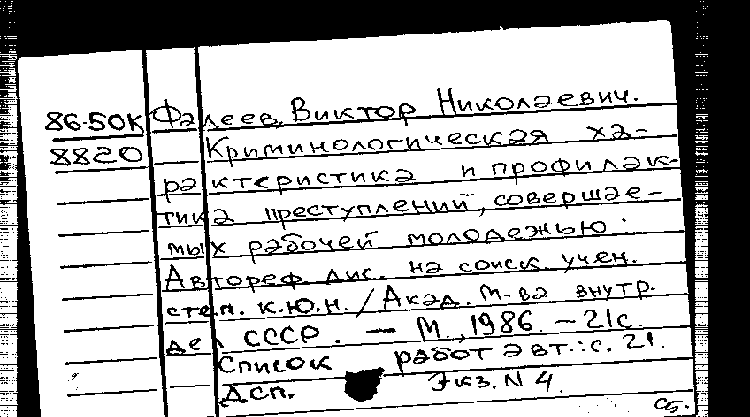 86-50К Фалеев, Виктор Николаевич.
8820 Криминологическая ха-
рактеристика и профилак-
тика преступлений, совершае-
мых рабочей молодежью.
Автореф. дис. на соиск. учен.
степ. к.ю.н. / Акад. М-ва внутр.
дел СССР. - М., 1986. - 21с.
Список работ авт.: с. 21.
Дсп. Экз. N 4.
Сб.